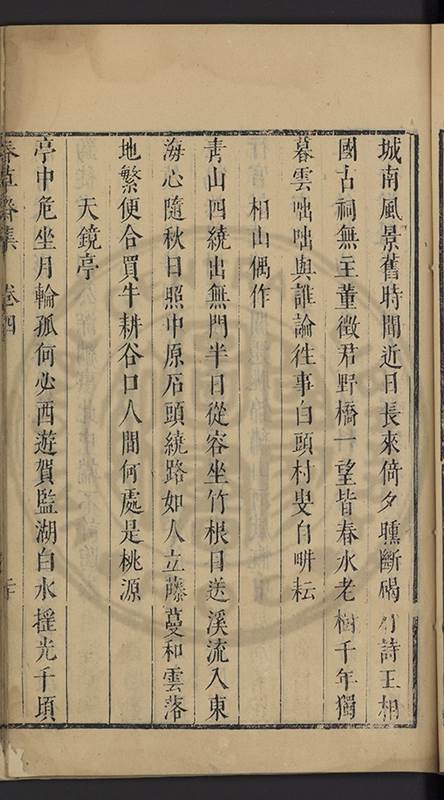 城南風景舊時聞近日長來倚夕曛斷碣有詩王相
國古祠無主董徵君野橋一望皆春水老樹千年獨
暮雲咄咄與誰論徃事白頭村叟自畊耘
相山偶作
青山四繞出無門半日從容坐竹根目送溪流入東
海心隨秋日照中原石頭繞路如人立藤蔓和雲落
地繁便合買牛耕谷口人間何處是桃源
天鏡亭
亭中危坐月輪孤何必西遊賀監湖白水摇光千頃
集 卷四